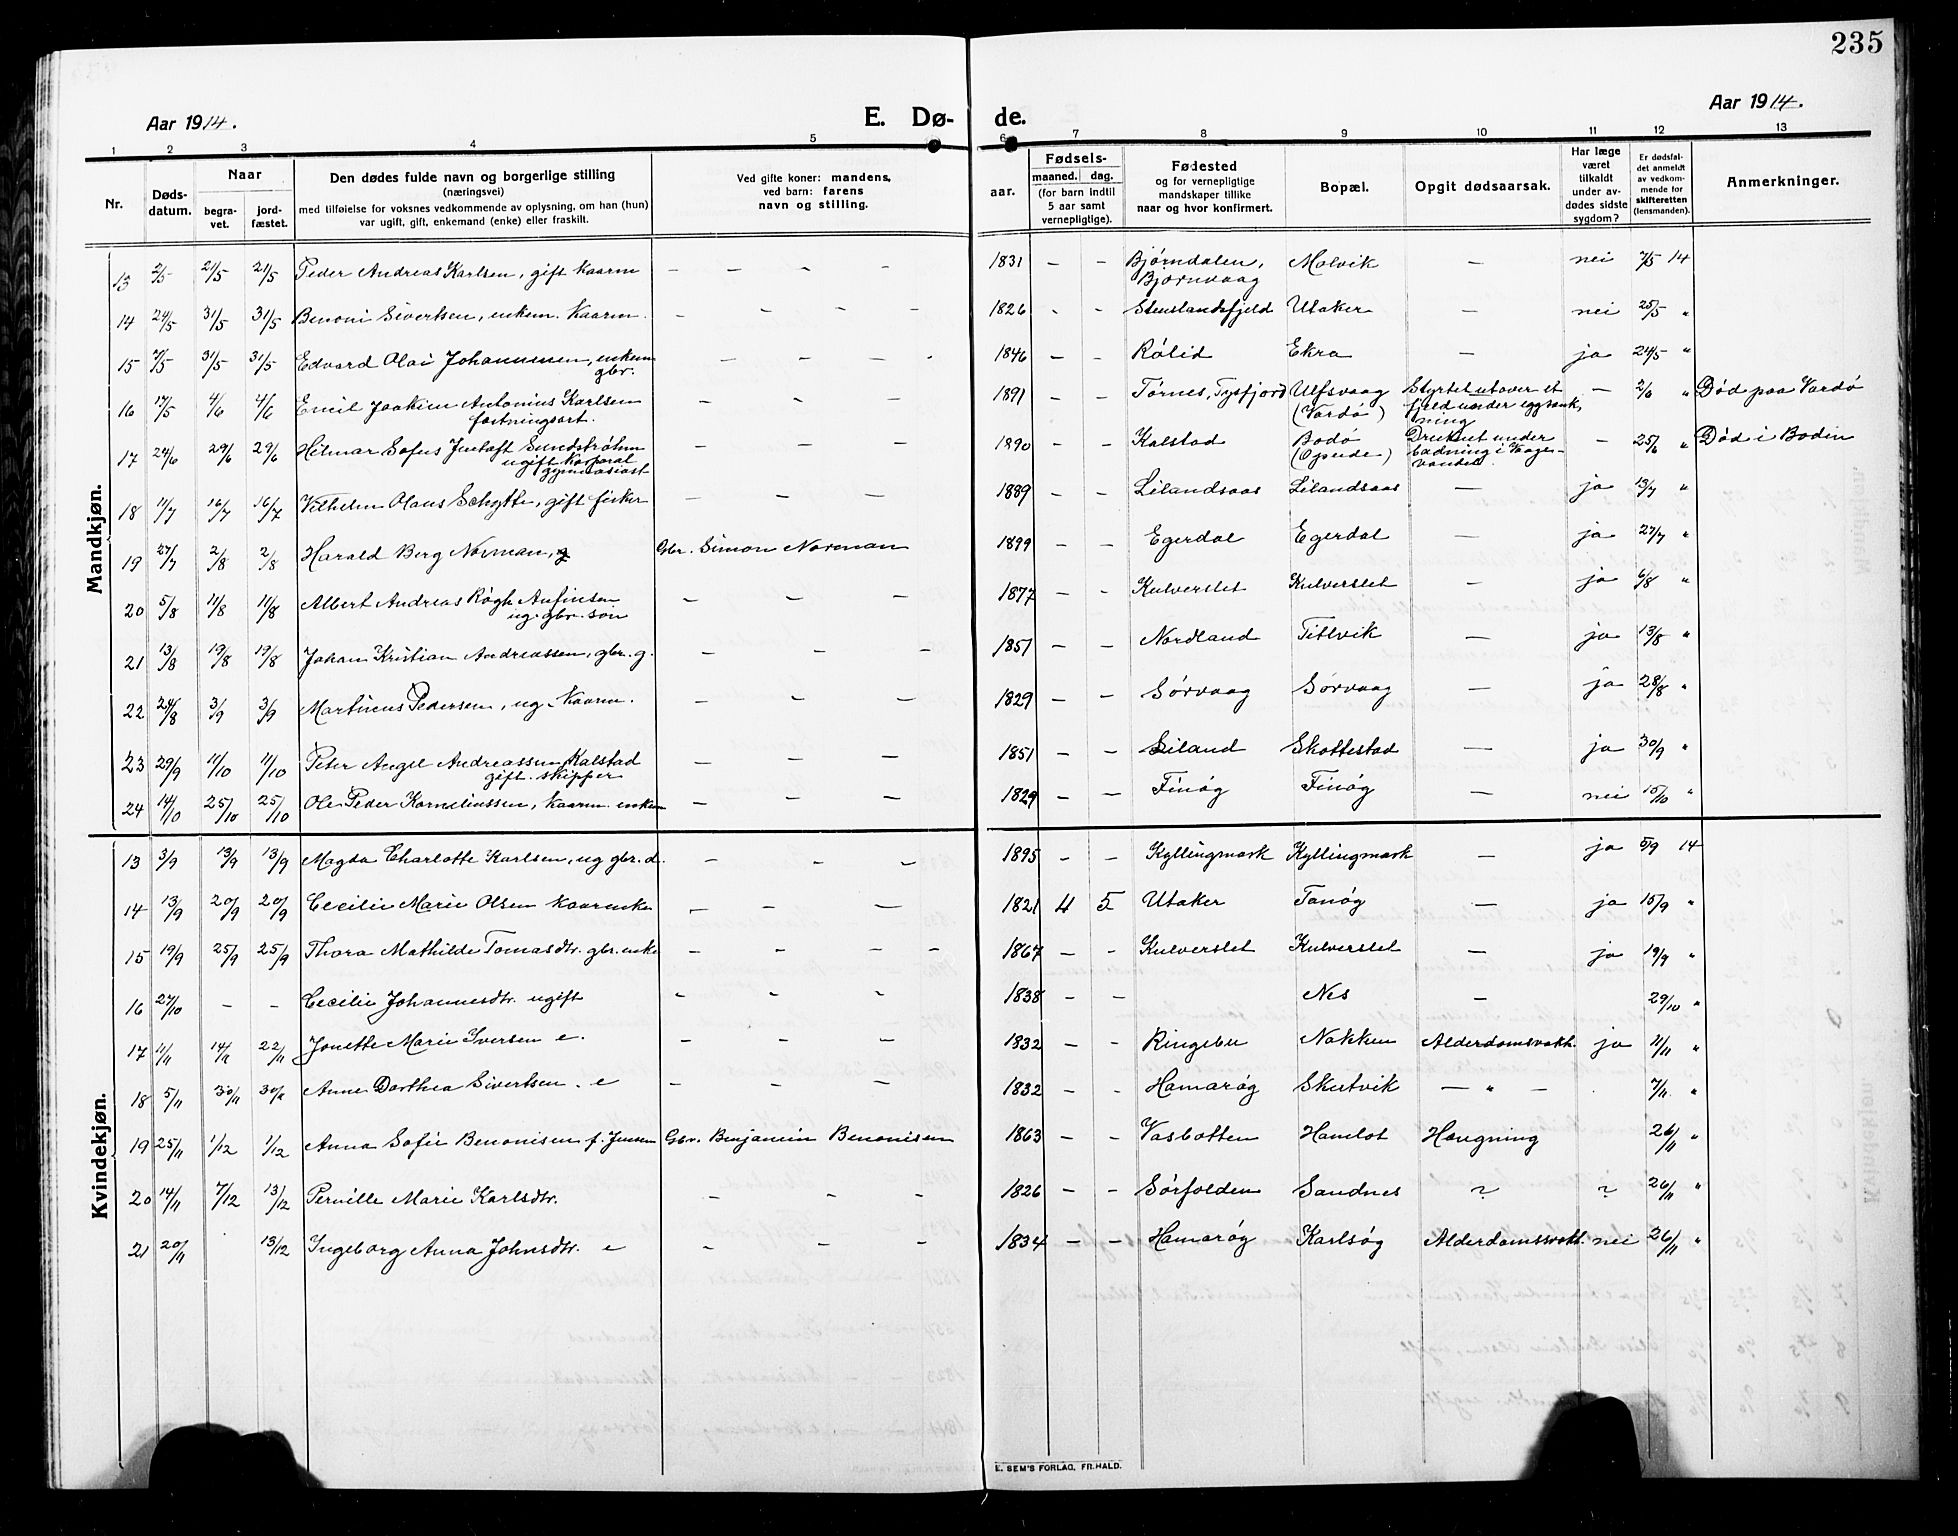 235
Aar 1914. E. Dø- de. Aar 1914.
1 2 3 3 4 5 6 7 8 9 10 11 12 13
Nr. Døds-datum. Naar begra-vet. jord-fæstet. Den dødes fulde navn og borgerlige stilling (næringsvei) med tilføielse for voksnes vedkommende av oplysning, om han (hun) var ugift, gift, enkemand (enke) eller fraskilt. Ved gifte koner: mandens, ved barn: farens navn og stilling. aar. Fødsels- maaned. dag. (for barn indtil 5 aar samt vernepligtige). Fødested og for vernepligtige mandskaper tillike naar og hvor konfirmert. Bopæl. Opgit dødsaarsak. Har læge været tilkaldt under av-dødes sidste sygdom? Er dødsfal-det anmeldt av vedkom-mende for skifteretten (lensmanden). Anmerkninger.
Mandkjøn.
13 2/5 21/5 21/5 Peder Andreas Karlsen, gift kaarm - - - - 1831 - - Bjørndalen, Bjørnvaag Molvik - nei 7/5 14
14 24/5 31/5 31/5 Benoni Sivertsen, enkem. kaarm. - - - - 1826 - - Stenslandsfjeld Utaker - nei 25/5 "
15 7/5 31/5 31/5 Edvard Olai Johannesen, enkem gbr. - - - - 1846 - - Rølid Ekra - ja 24/5 "
16 17/5 4/6 4/6 Emil Joakim Antonius Karlsen fæstningsart. - - - 1891 - - Tørnes, Tysfjord Ulfsvaag (Vardø) Styrtet utover et fjeld under eggsankning - 2/6 " Død paa Vardø
17 24/6 29/6 29/6 Helmar Sofus Justaft Sundstrøhm ugift korporal gymnasiast - - - 1890 - - Kalstad Bodø (Opsude) Druknet under badning i Vaagevandet. - 25/6 " Død i Bodin
18 11/7 16/7 16/7 Vilhelm Olaus Schytte, gift fisker - - - 1889 - - Lilandsaas Lilandsaas - ja 13/7 "
19 27/7 2/8 2/8 Harald Berg Norman, Gbr. Simon Norman 1899 - - Egerdal Egerdal - ja 27/7 "
20 5/8 11/8 11/8 Albert Andreas Røgh Anfinsen ug. gbr. søn - - - 1877 - - Kulverslet Kulverslet - ja 6/8 "
21 13/8 19/8 19/8 Johan Kristian Andreassen, gbr. g. - - - 1851 - - Nordland Titlvik - ja 13/8 "
22 24/8 3/9 3/9 Martinus Pedersen, ug. kaarm. - - - 1829 - - Sørvaag Sørvaag - ja 28/8 "
23 29/9 11/10 11/10 Peter Angel Andreassen Kalstad gift. skipper - - - 1851 - - Liland Skottestad - ja 30/9 "
24 14/10 25/10 25/10 Ole Peder Korneliussen, kaarm. enkem - - - 1829 - - Finøg Finøg - nei 15/10 "
Kvindekjøn.
13 3/9 13/9 13/9 Magda Charlotte Karlsen, ug gbr. d. - - - 1895 - - Kyllingmark Kyllingmark - ja 5/9 14
14 13/9 20/9 20/9 Cecilie Marie Olsen kaarenke - - - 1821 4 5 Utaker Tanøg - ja 15/9 "
15 19/9 25/9 25/9 Thora Mathilde Tomasdtr. gbr. enke - - - - 1867 - - Kulverslet Kulverslet - ja 19/9 "
16 27/10 - - Cecilie Johannesdtr. ugift - - - 1838 - - Nes - 29/10 "
17 1/11 14/11 22/11 Jonette Marie Iversen e. - - - 1832 - - Ringebu Nakken Alderdomsvakh. ja 11/11 "
18 5/11 30/11 30/11 Anne Dorthea Sivertsen. e - - - 1832 - - Hamarøg Skutvik - " - 7/11. "
19 25/11 1/12 1/12 Anna Sofie Benonisen f. Jensen Gbr. Benjamin Benonisen 1863 - - Vasbotten Hamlot Hængning 26/11 "
20 14/11 7/12 13/12 Pernille Marie Karlsdtr. - - - 1826 - - Sørfolden Sandnes ? ? 26/11 "
21 20/11 13/12 Ingeborg Anna Johnsdtr. e - - - 1834 - - Hamarøg Karlsøg Alderdomssvakh. nei 26/11 "
E. SEM'S FORLAG, FR.HALD.